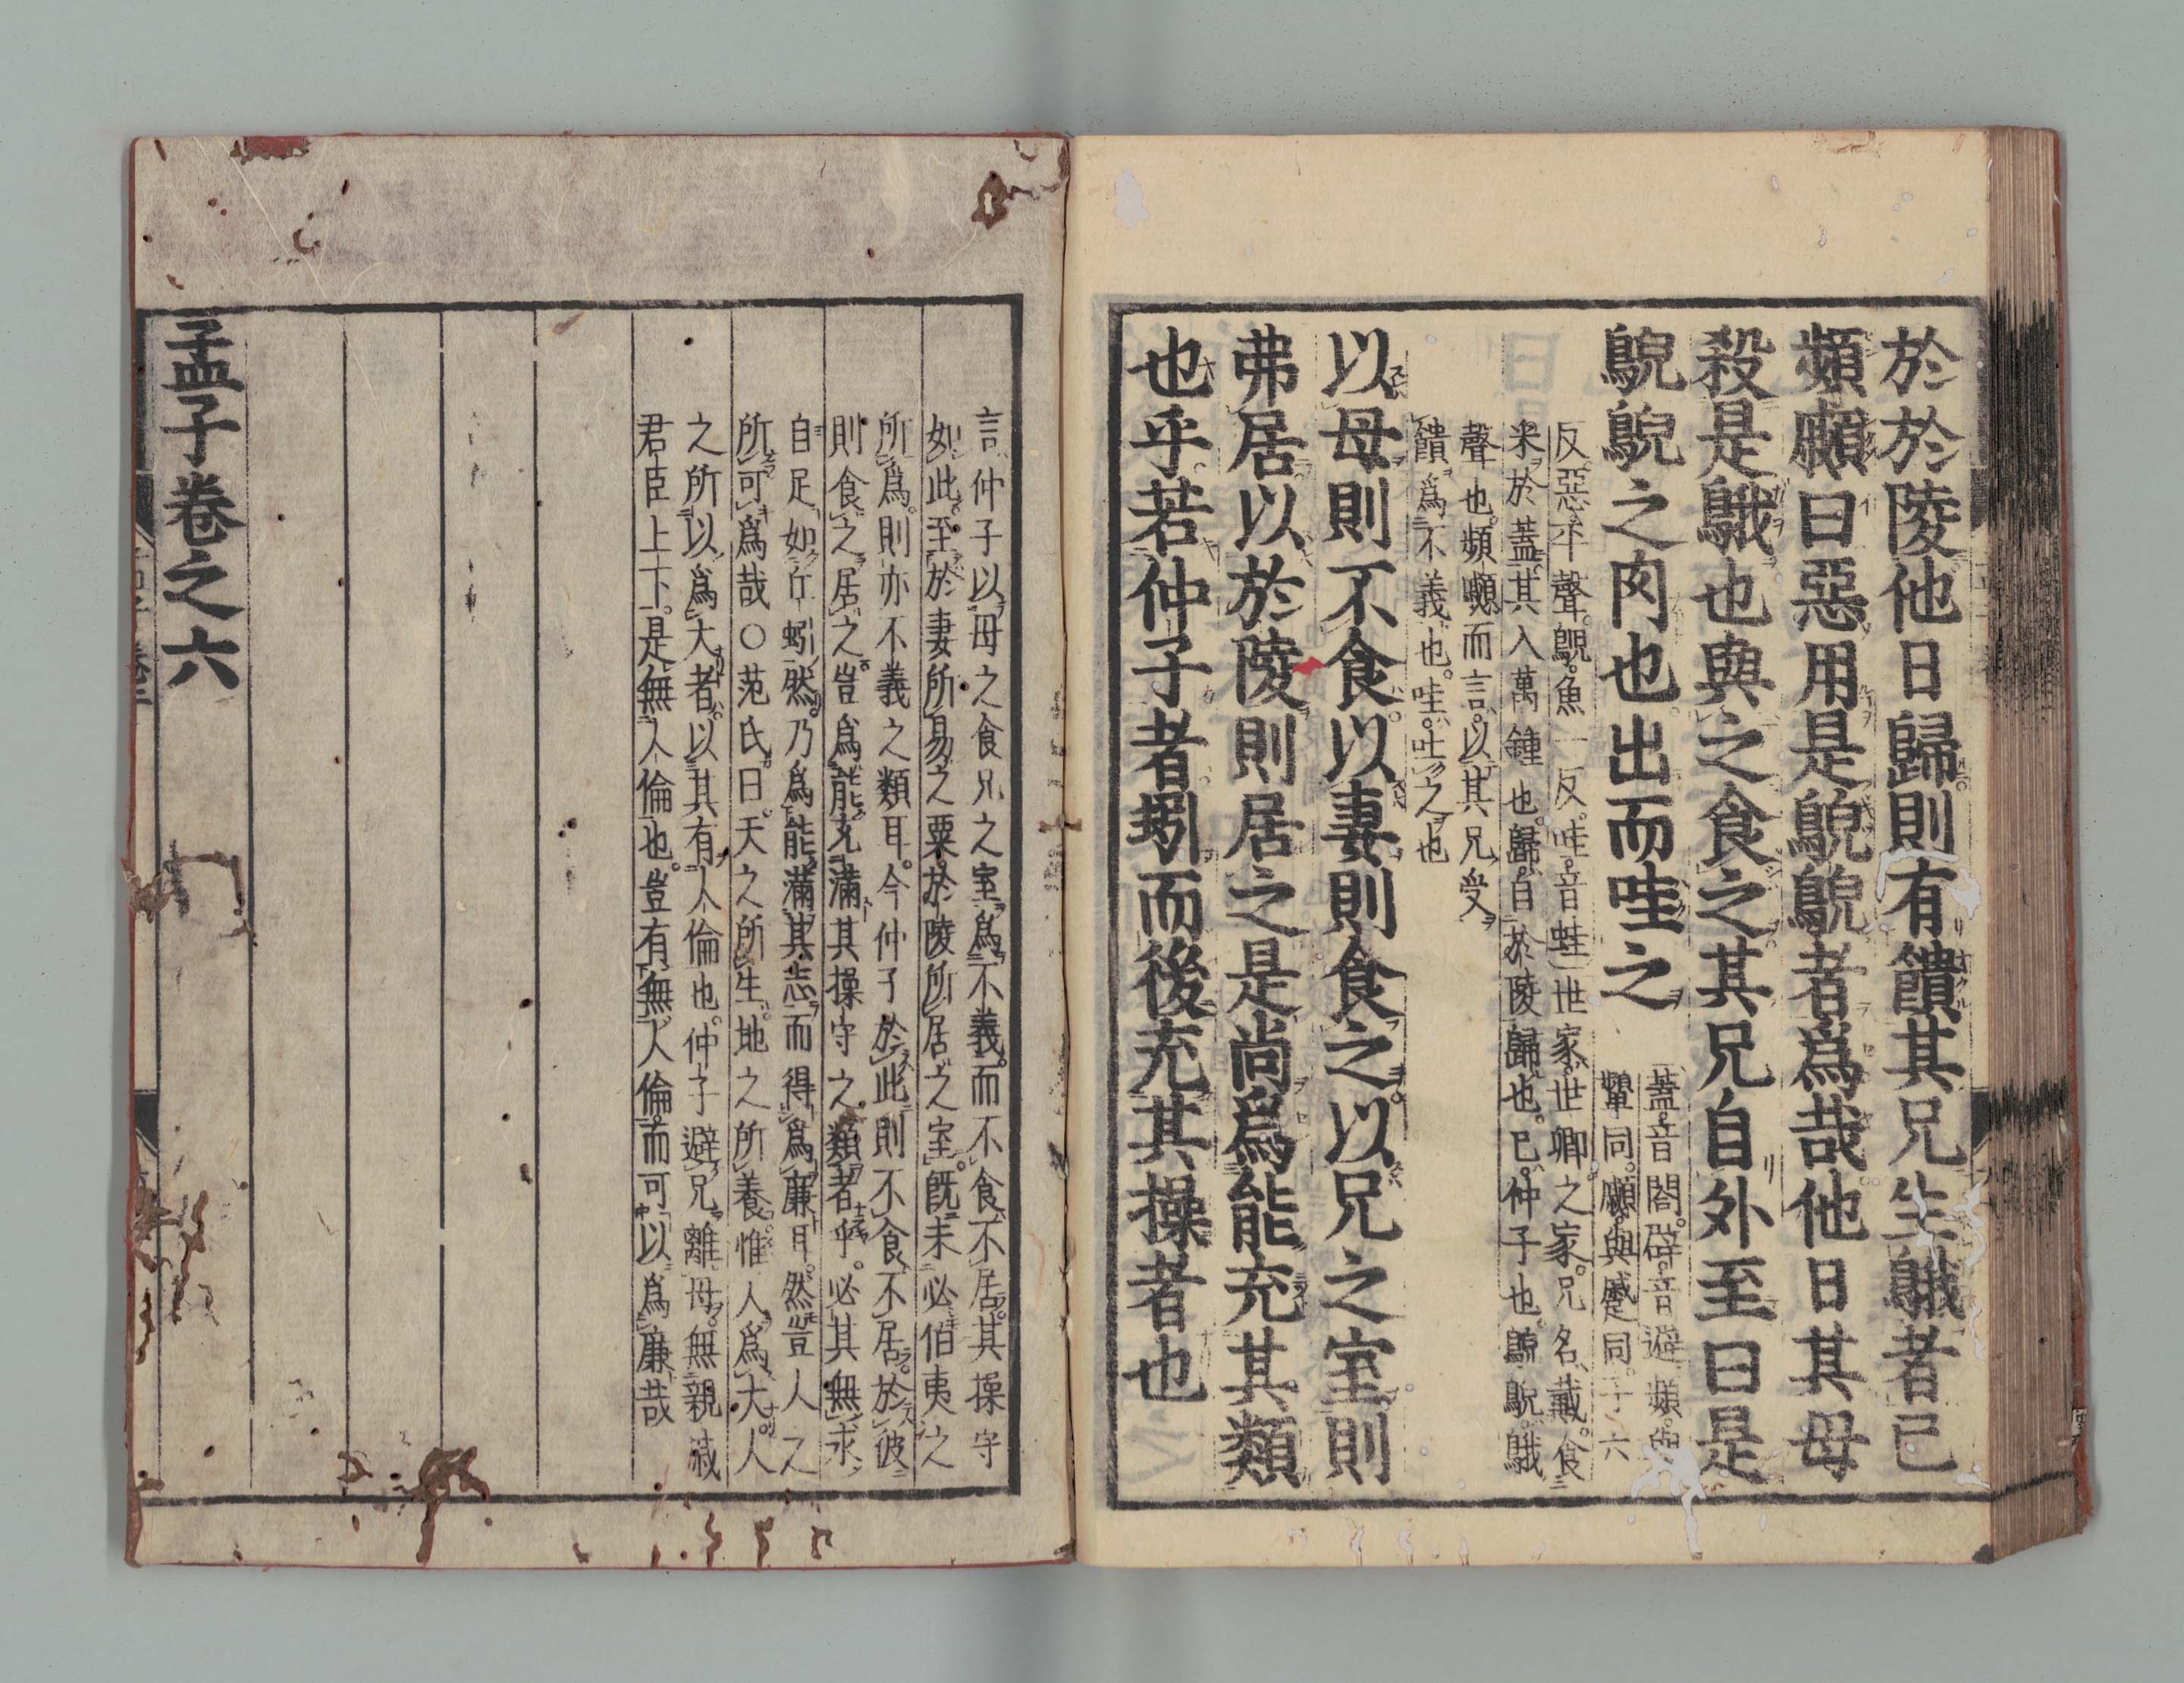 於於陵他日歸則有饋其兄生鵝者已
頻顣曰惡用是鶃鶃者爲哉他日其母
殺是鵝也與之食之其兄自外至曰是
鶃鶃之肉也出而哇之
蓋音閤辟音避頻與
顰同顣與蹙同子六
反惡平聲鶃魚一反哇音蛙世家世卿之家兄名戴食
采於蓋其入萬鍾也歸自於陵歸也已仲子也鶃鶃鵝
聲也頻顣而言以其兄受
饋爲不義也哇吐之也
以母則不食以妻則食之以兄之室則
弗居以於陵則居之是尚爲能充其類
也乎若仲子者蚓而後充其操者也
言仲子以母之食兄之室爲不義而不食不居其操守
如此至於妻所易之粟於陵所居之室既未必伯夷之
所爲則亦不義之類耳今仲子於此則不食不居於彼
則食之居之豈爲能充滿其操守之類者乎必其無求
自足如丘蚓然乃爲能滿其志而得爲廉耳然豈人之
所可爲哉○范氏曰天之所生地之所養惟人爲大人
之所以爲大者以其有人倫也仲子避兄離母無親戚
君臣上下是無人倫也豈有無人倫而可以爲廉哉
孟子卷之六